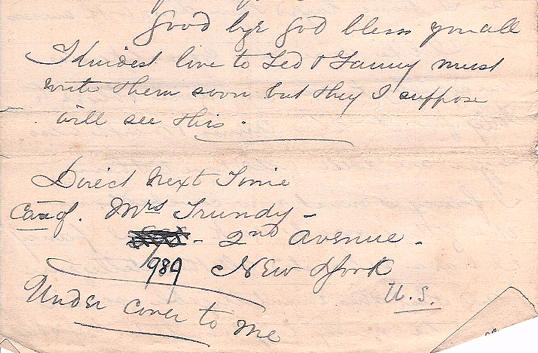 Good bye God bless you all
Kindest love to Ted & Fanny must
write them soon but they I suppose
will see this.
Direct Next Time
Care of. Mrs Trundy -
- 2nd Avenue -
989 New York
U.S.
Under cover to me